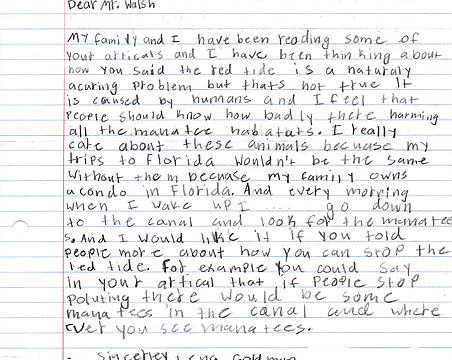 Dear Mr. Walsh
My family and I have been reading some of
your articals and I have been thinking about
how you said the red tide is a naturaly
acuring problem but thats not true It
is caused by humans and I feel that
people should know how badly there harming
all the manatee habatats. I really
care about these animals becuase my
trips to Florida wouldn't be the same
without them becuase my family owns
a condo in Florida. And every morning
when I wake up I ..... go down
to the canal and look for the manatee
s. And I would like it if you told
people more about how you can stop the
red tide. For example you could say
in your artical that if people stop
poluting there would be some
manatees in the canal and where
ever you see manatees.
Sincerley